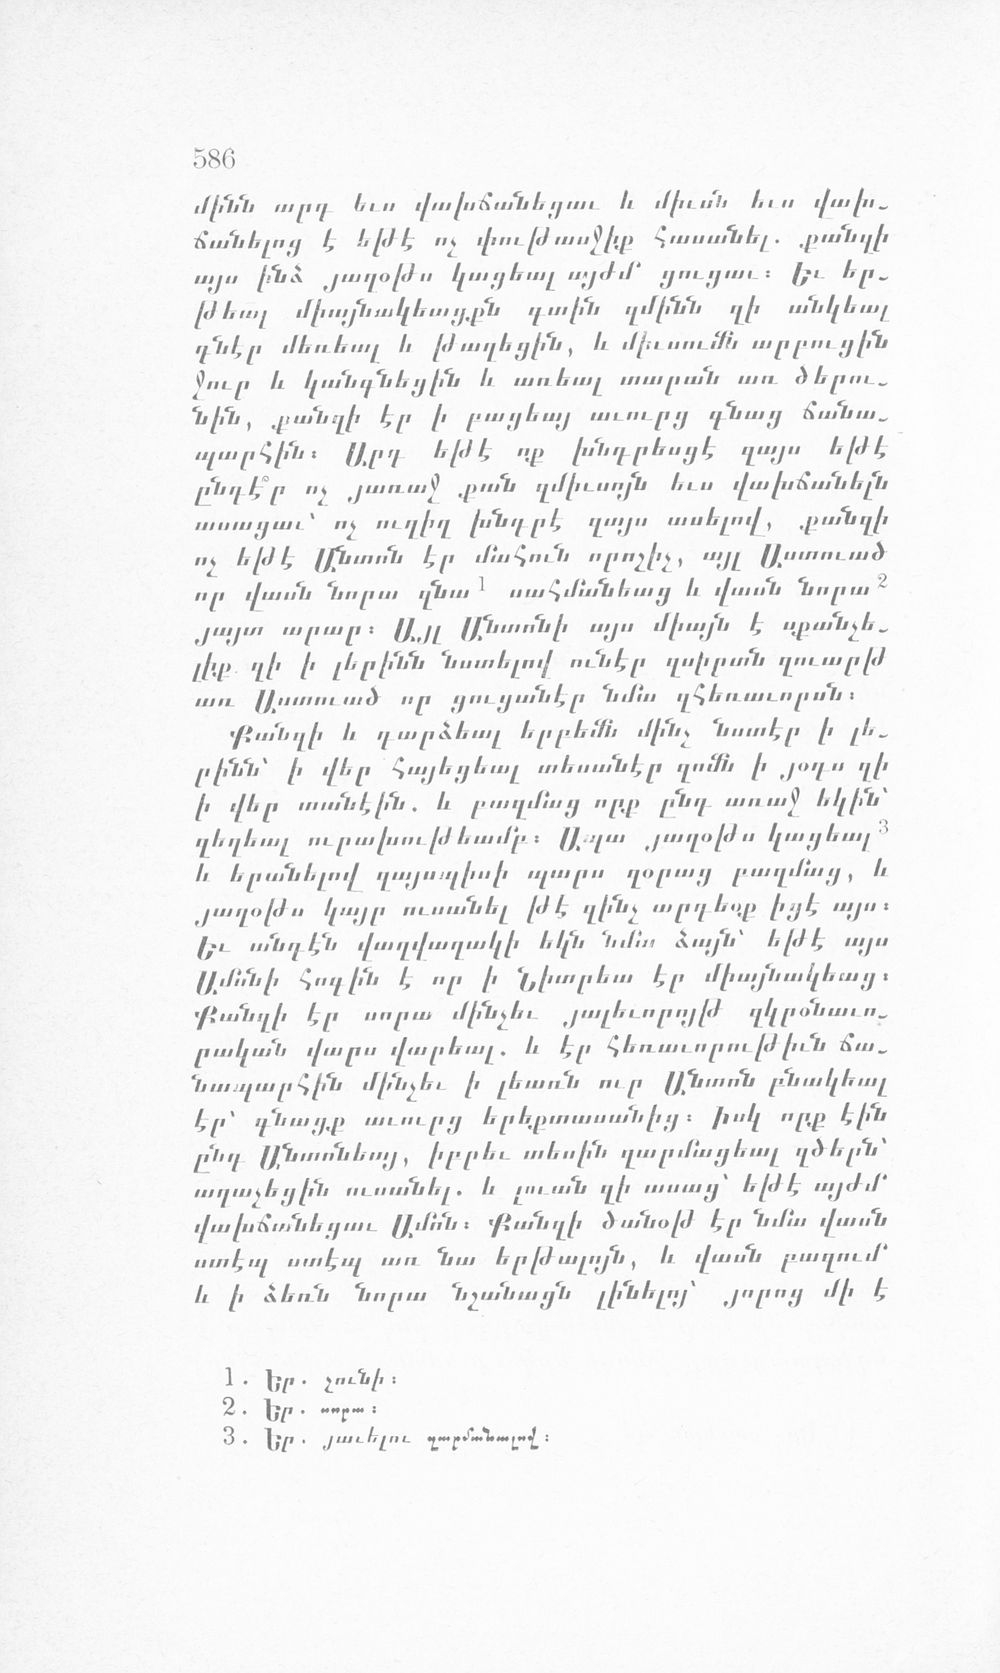 586
մինն արդ եւս վախճանեցաւ և միւսն եւս վախ-
ճանելոց է եթէ ոչ փութասջիք հասանել. քանզի
այս ինձ յաղօթս կացեալ այժմ՝ ցուցաւ։ Եւ եր-
թեալ միայնակեացքն գտին զմինն զի անկեալ
գնէր մեռեալ և թաղեցին, և միւսումն արբուցին
ջուր և կանգնեցին և առեալ տարան առ ծերու-
նին, քանզի էր ի բացեայ աւուրց գնաց ճանա-
պարհին։ Արդ եթէ ոք խնդրեսցէ զայս եթէ
ընդէ՞ր ոչ յառաջ քան զմիւսոյն եւս վախճանելն
ասացաւ՝ ոչ ուղիղ խնդրէ զայս ասելով, քանզի
ոչ եթէ Անտոն էր մահուն որոշիչ, այլ Աստուած
որ վասն նորա զնա¹ սահմանեաց և վասն նորա²
յայտ արար։ Այլ Անտոնի այս միայն է սքանչե-
լիք զի ի լերինն նստելով ունէր զսիրտն զուարթ
առ Աստուած որ ցուցանէր նմա զհեռաւորսն։
Քանզի և դարձեալ երբեմն մինչ նստէր ի լե-
րինն՝ ի վեր հայեցեալ տեսանէր զոմն ի յօդս զի
ի վեր տանէին. և բազմաց որք ընդ առաջ եկին՝
զեղեալ ուրախութեամբ։ Ապա յաղօթս կացեալ³
և երանելով զայսպիսի պարս զօրաց բազմաց, և
յաղօթս կայր ուսանել թէ զինչ արդեօք իցէ այս։
Եւ անդէն վաղվաղակի եկն նմա ձայն՝ եթէ այս
Ամոնի հոգին է որ ի Նիտրեա էր միայնակեաց։
Քանզի էր սորա մինչեւ յալեւորոյթ զկրօնաւո-
րական վարս վարեալ. և էր հեռաւորութիւն ճա-
նապարհին մինչեւ ի լեառն ուր Անտոն բնակեալ
էր՝ գնացք աւուրց երեքտասանից։ Իսկ որք էին
ընդ Անտոնեայ, իբրեւ տեսին զարմացեալ զծերն՝
աղաչեցին ուսանել. և լուան զի ասաց՝ եթէ այժմ՝
վախճանեցաւ Ամոն։ Քանզի ծանօթ էր նմա վասն
ստէպ ստէպ առ նա երթալոյն, և վասն բազում՝
և ի ձեռն նորա նշանացն լինելոյ՝ յորոց մի է
1. Եր. չունի։
2. Եր. սորա։
3. Եր. յաւելու զարմանալով։